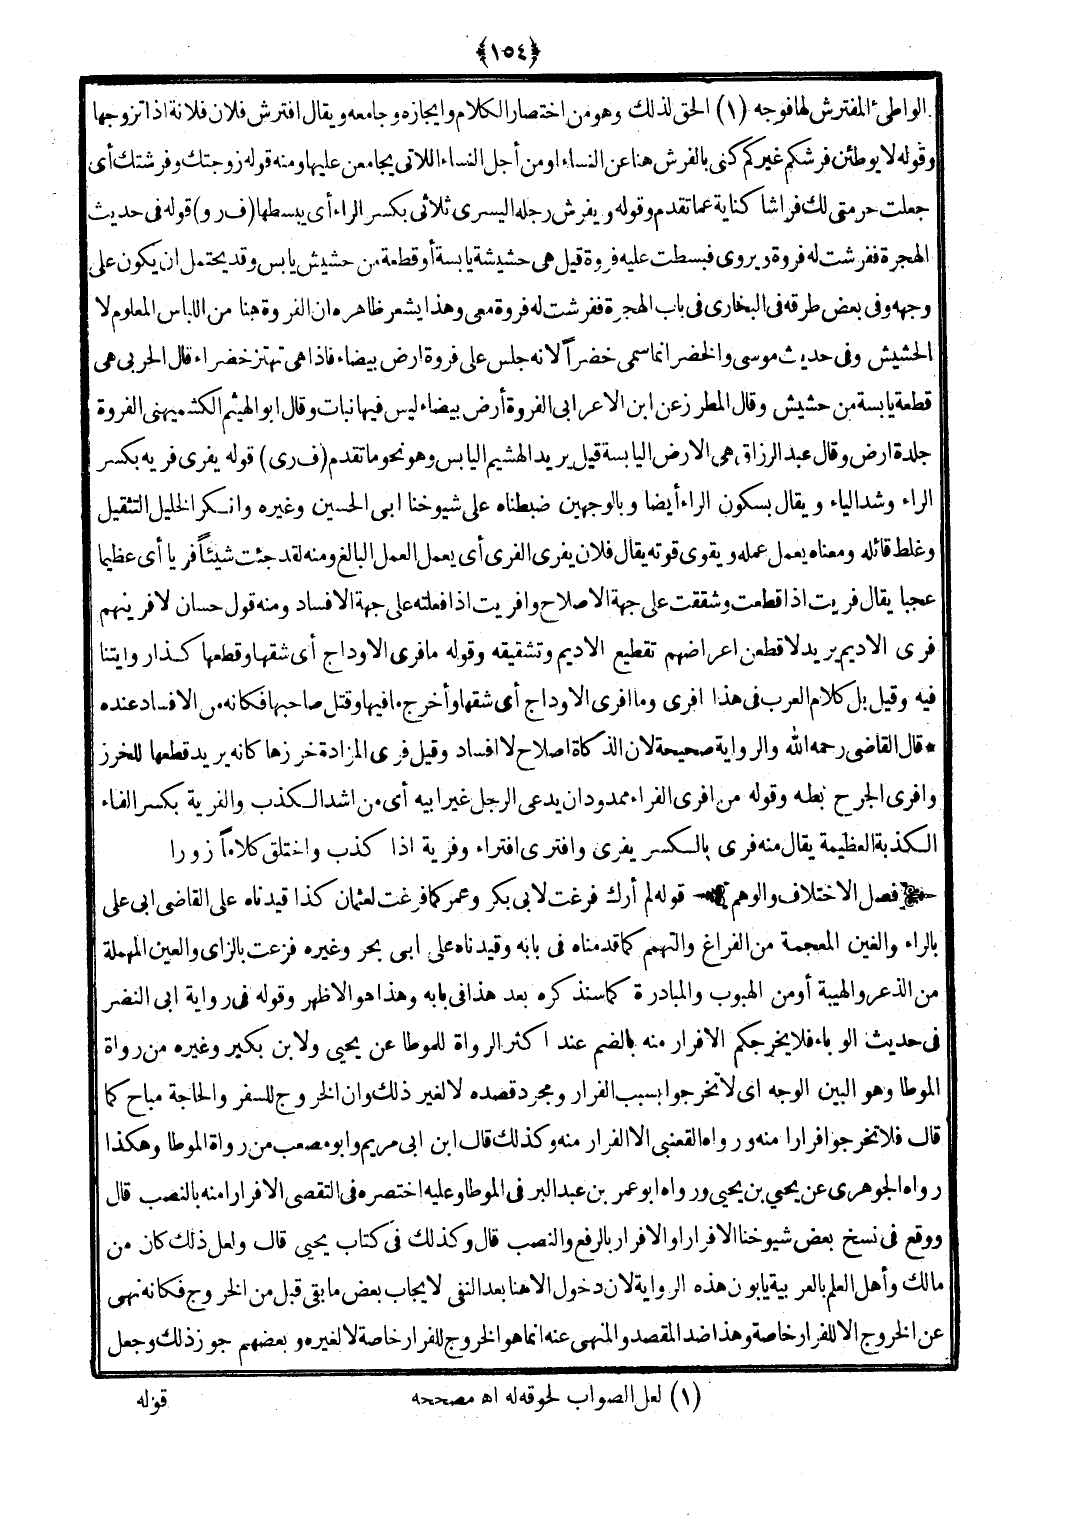 ﴿١٥٤﴾
الواطئ المفترش لها فوجه (١) الحق لذلك وهو من اختصار الكلام وايجازه وجامعه ويقال افترش فلان فلانة اذا تزوجها
وقوله لا يوطئن فرشكم غيركم كنى بالفرش هنا عن النساء او من أجل النساء اللاتى يجامعن عليها ومنه قوله زوجتك وفرشتك أى
جعلت حرمتى لك فراشا كناية عما تقدم وقوله ويفرش رجله اليسرى ثلاثى بكسر الراء أى يبسطها (ف ر و) قوله فى حديث
الهجرة ففرشت له فروة ويروى فبسطت عليه فروة قيل هى حشيشة يابسة أو قطعة من حشيش يابس وقد يحتمل ان يكون على
وجهه وفى بعض طرقه فى البخارى فى باب الهجرة ففرشت له فروة معى وهذا يشعر ظاهره ان الفروة هنا من اللباس المعلوم لا
الحشيش وفى حديث موسى والخضر انما سمى خضراً لانه جلس على فروة ارض بيضاء فاذا هى تهتز خضراء قال الحربى هى
قطعة يابسة من حشيش وقال المطرز عن ابن الاعرابى الفروة أرض بيضاء ليس فيها نبات وقال ابو الهيثم الكشميهنى الفروة
جلدة ارض وقال عبد الرزاق هى الارض اليابسة قيل يريد الهشيم اليابس وهو نحو ما تقدم (ف ر ى) قوله يفرى فريه بكسر
الراء وشد الياء ويقال بسكون الراء أيضا وبالوجهين ضبطناه على شيوخنا ابى الحسين وغيره وانكر الخليل التثقيل
وغلط قائله ومعناه يعمل عمله ويقوى قوته يقال فلان يفرى الفرى أى يعمل العمل البالغ ومنه لقد جئت شيئاً فريا أى عظيما
عجبا يقال فريت اذا قطعت وشققت على جهة الاصلاح وافريت اذا فعلته على جهة الافساد ومنه قول حسان لافرينهم
فرى الاديم يريد لاقطعن اعراضهم تقطيع الاديم وتشقيقه وقوله ما فرى الاوداج أى شقها وقطعها كذا روايتنا
فيه وقيل بل كلام العرب فى هذا افرى وما افرى الاوداج أى شقها وأخرج ما فيها وقتل صاحبها فكانه من الافساد عنده
* قال القاضى رحمه الله والرواية صحيحة لان الذكاة اصلاح لا افساد وقيل فرى المزادة خرزها كانه يريد قطعها للخرز
وافرى الجرح بطه وقوله من افرى الفراء ممدود ان يدعى الرجل غير ابيه أى من اشد الكذب والفرية بكسر الفاء
الكذبة العظيمة يقال منه فرى بالكسر يفرى وافترى افتراء وفرية اذا كذب واختلق كلاماً زورا
فصل الاختلاف والوهم قوله لم أرك فرغت لابى بكر وعمر كما فرغت لعثمان كذا قيدناه على القاضى ابى على
بالراء والغين المعجمة من الفراغ والتهمم كما قدمناه فى بابه وقيدناه على ابى بحر وغيره فزعت بالزاى والعين المهملة
من الذعر والهيبة أو من الهبوب والمبادرة كما سنذكره بعد هذا فى بابه وهذا هو الاظهر وقوله فى رواية ابى النضر
فى حديث الوباء فلا يخرجكم الافرار منه بالضم عند اكثر الرواة للموطا عن يحيى ولابن بكير وغيره من رواة
الموطا وهو البين الوجه اى لا تخرجوا بسبب الفرار ومجرد قصده لا لغير ذلك وان الخروج للسفر والحاجة مباح كما
قال فلا تخرجوا فرارا منه ورواه القعنبى الا الفرار منه وكذلك قال ابن ابى مريم وابو مصعب من رواة الموطا وهكذا
رواه الجوهرى عن يحيى بن يحيى ورواه ابو عمر بن عبد البر فى الموطا وعليه اختصره فى التقصى الا فرارا منه بالنصب قال
ووقع فى نسخ بعض شيوخنا الا فرارا والا فرار بالرفع والنصب قال وكذلك فى كتاب يحيى قال ولعل ذلك كان من
مالك وأهل العلم بالعربية يابون هذه الرواية لان دخول الا هنا بعد النفى لايجاب بعض ما بقى قبل من الخروج فكانه نهى
عن الخروج الا للفرار خاصة وهذا ضد المقصد والمنهى عنه انما هو الخروج للفرار خاصة لا لغيره وبعضهم جوز ذلك وجعل
(١) لعل الصواب لحوقه له اه مصححه
قوله